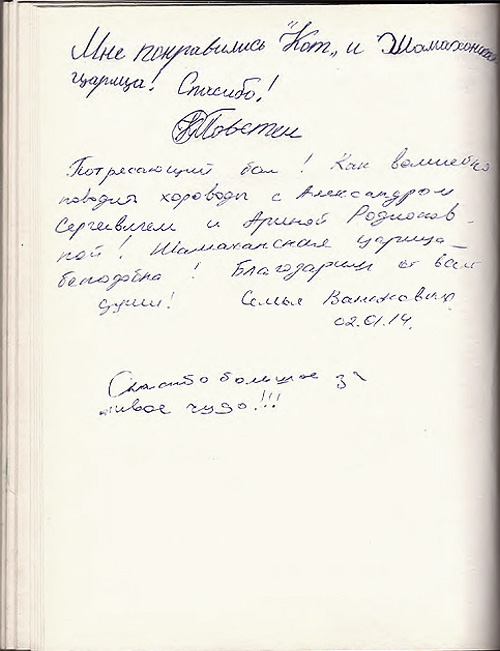 Мне понравились "Кот" и Шамаханская
царица! Спасибо!
Потрясающий бал! Как волшебно
поводил хороводы с Александром
Сергеевичем и Ариной Родионов-
ной! Шамаханская царица –
бесподобна! Благодарим от всей
души! Семья
02.01.14.
Спасибо большое за
живое чудо!!!